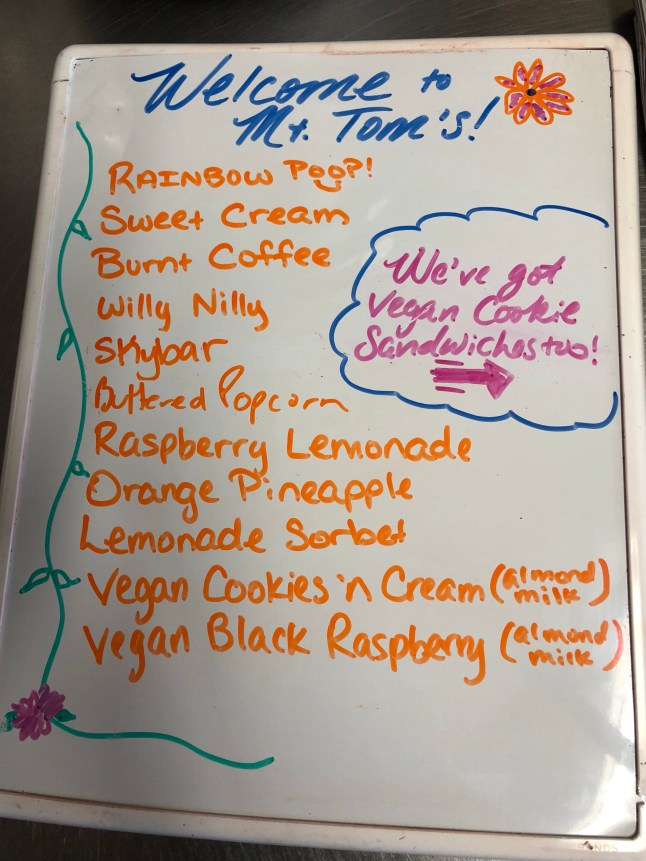 Welcome to
Mt. Tom's!
RAINBOW POOP!
Sweet Cream
Burnt Coffee
Willy Nilly
Skybar
Buttered Popcorn
Raspberry Lemonade
Orange Pineapple
Lemonade Sorbet
Vegan Cookies 'n Cream (almond milk)
Vegan Black Raspberry (almond milk)
We've got
Vegan Cookie
Sandwiches too!